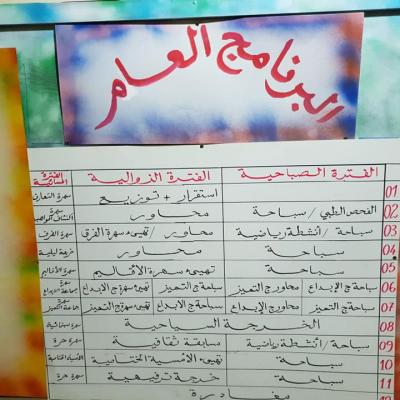 البرنامج العام
الفترة الصباحية الفترة الزوالية الفترة المسائية
01 استقرار + توزيع سهرة التعارف
02 الفحص الطبي / سباحة محاور سهرة
03 سباحة / أنشطة رياضية محاور / تهيئ سهرة الفرق سهرة الفرق
04 سباحة محاور خرجة ليلية
05 سباحة تهيئ سهرة الأقاليم سهرة الأقاليم
06 سباحة ج الإبداع محاور ج التميز سباحة ج التميز تهيئ سهرة ج الإبداع سهرة جماعة الإبداع
07 سباحة ج التميز محاور ج الإبداع سباحة ج الإبداع تهيئ سهرة ج التميز سهرة جماعة التميز
08 الخرجة السياحية سهرة سينمائية
09 سباحة / أنشطة رياضية مسابقة ثقافية سهرة حرة
10 سباحة تهيئ الأمسية الختامية الأمسية الختامية
11 سباحة خرجة ترفيهية سهرة حرة
12 مغادرة